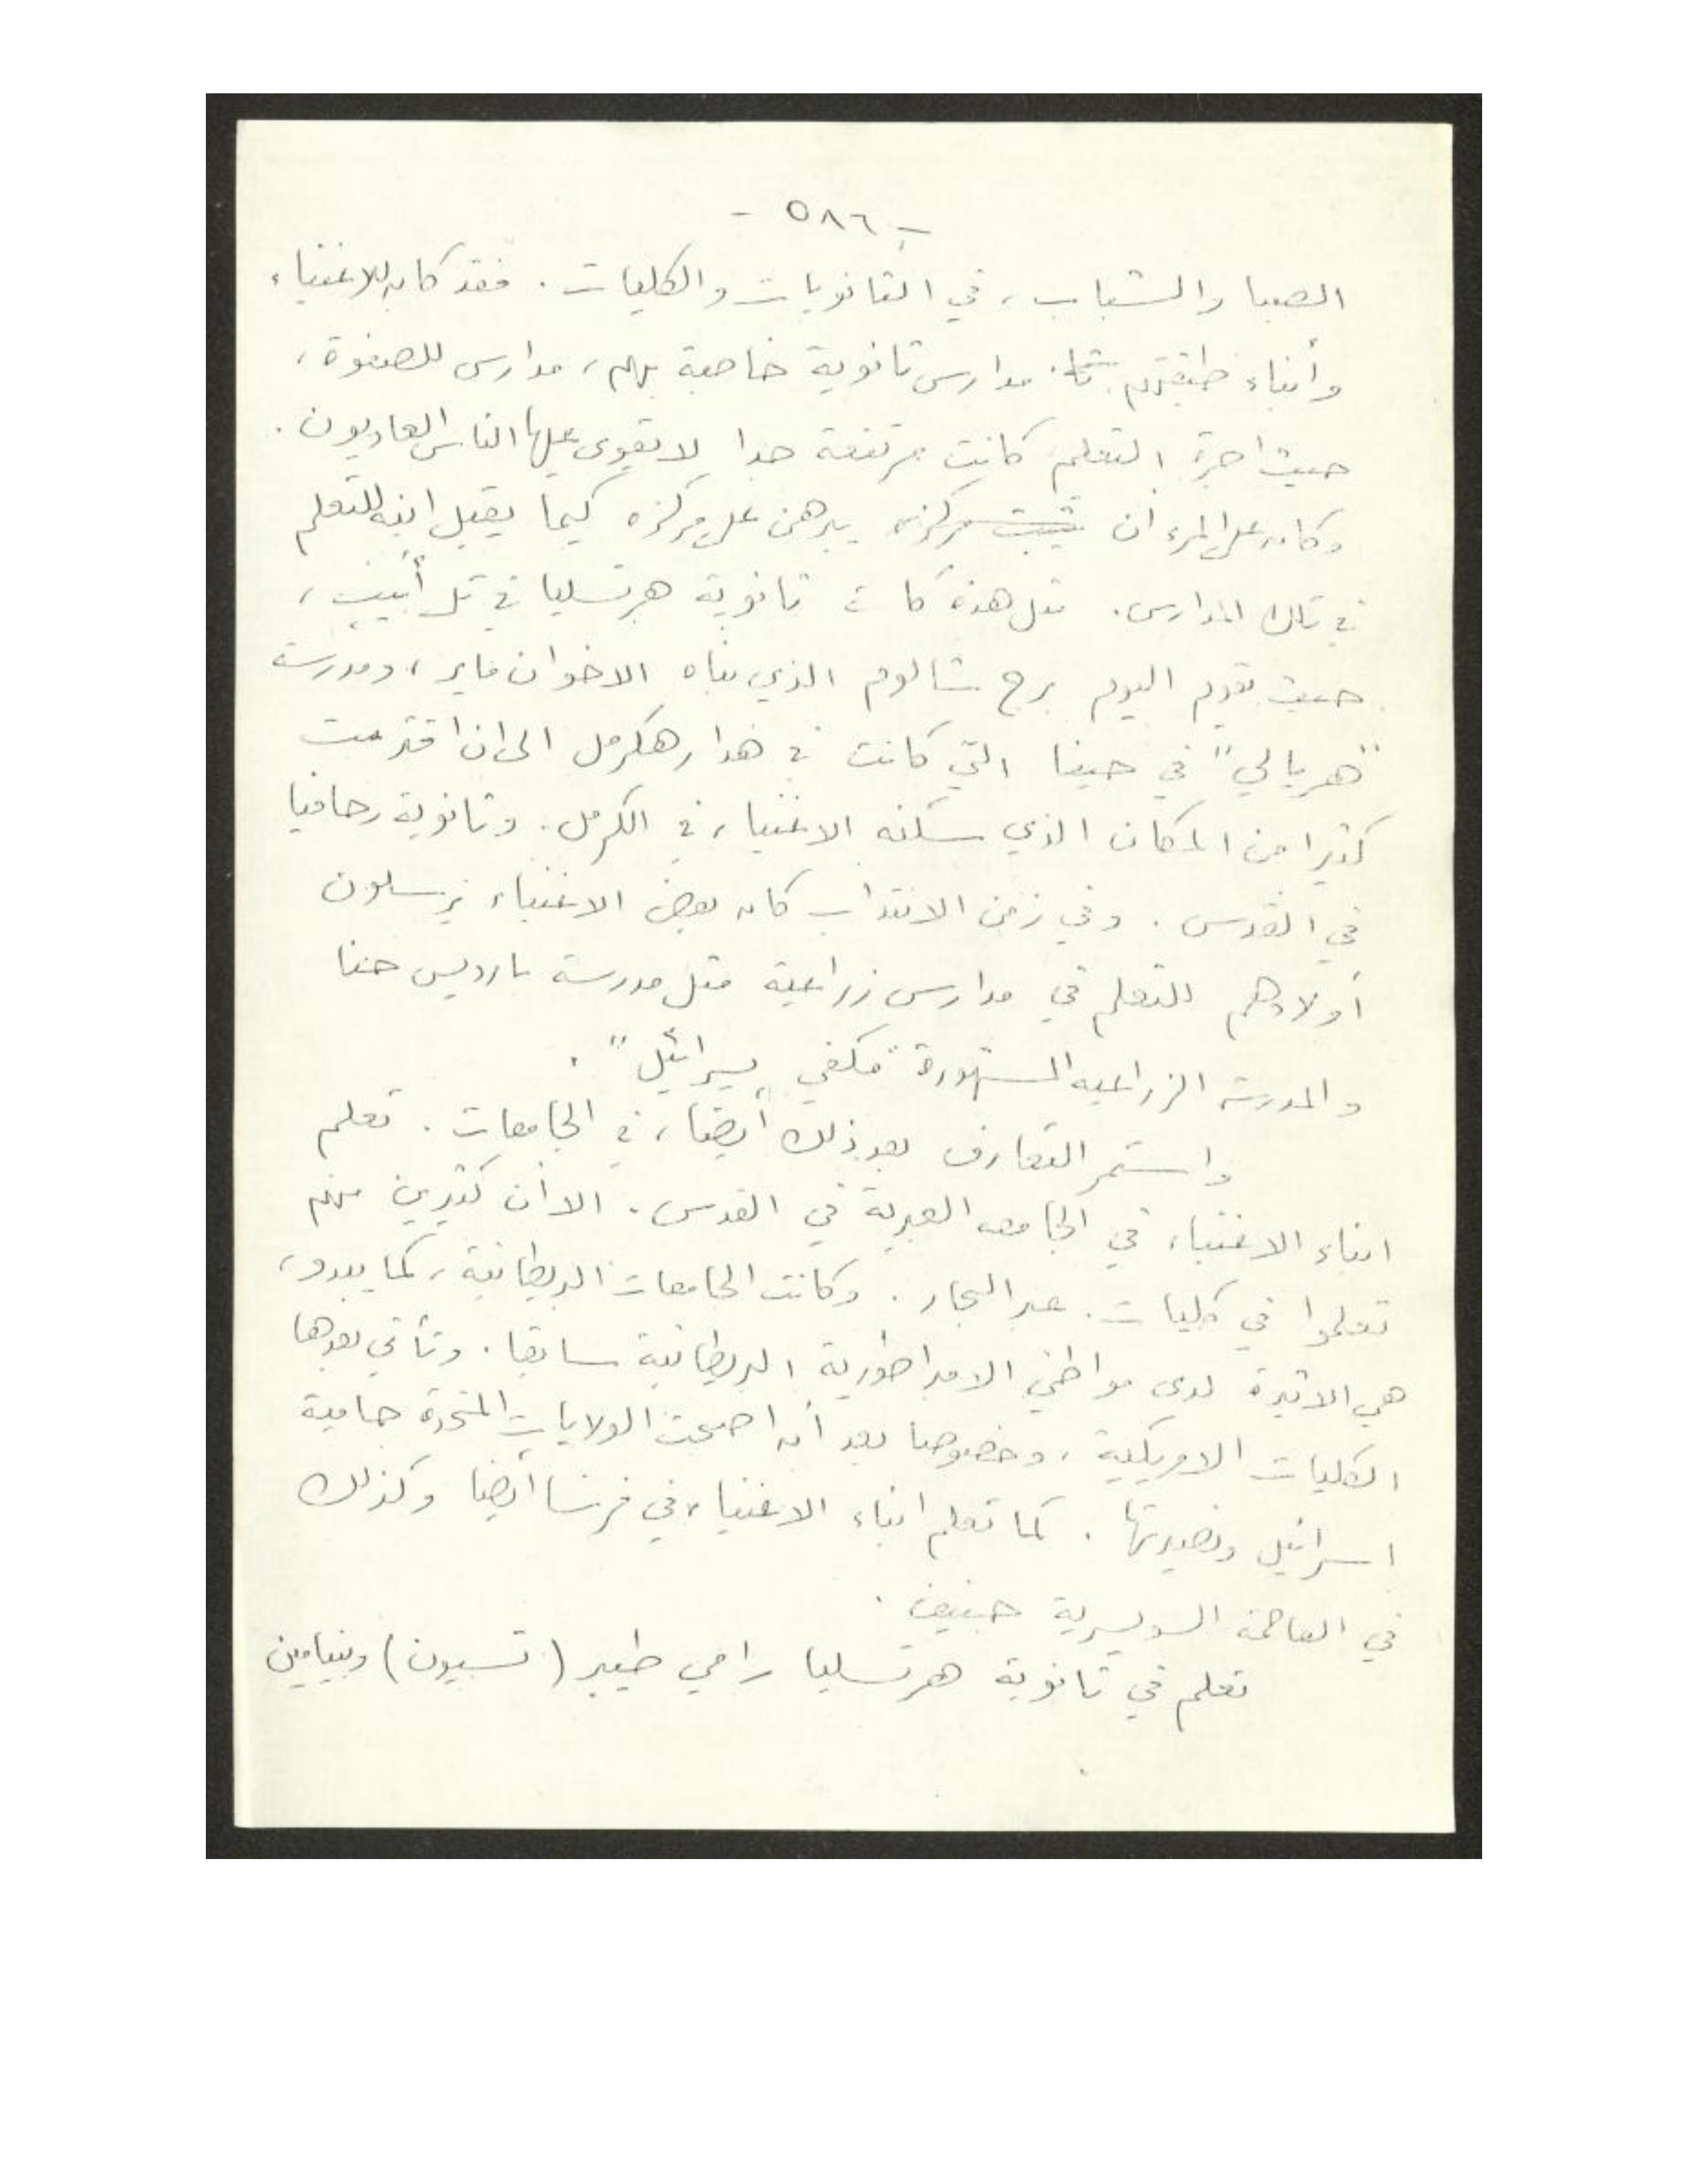 - ٥٨٦ -
الصبا والشباب، في الثانويات والكليات. فقد كان للاغنياء
وأبناء طبقتهم ثا. مدارس ثانوية خاصة بهم، مدارس للصفوة،
حيث اجرة التعلم كانت مرتفعة جدا لا يقوى عليها الناس العاديون.
وكان على المرء ان يثبت مركزه يبرهن على مركزه كيما يقبل ابنه للتعلم
في تلك المدارس. مثل هذه كانت ثانوية هرتسليا في تل أبيب،
حيث يقوم اليوم برج شالوم الذي بناه الاخوان ماير، ومدرسة
"هريالي" في حيفا التي كانت في هدار هكرمل الى ان اقتربت
كثيرا من المكان الذي سكنه الاغنياء، في الكرمل. وثانوية رحافيا
في القدس. وفي زمن الانتداب كان بعض الاغنياء يرسلون
أولادهم للتعلم في مدارس زراعية مثل مدرسة بارديس حنا
والمدرسة الزراعيه المشهورة "مكفي يسرائيل".
واستمر التعارف بعد ذلك أيضا، في الجامعات. تعلم
ابناء الاغنياء في الجامعه العبرية في القدس. الا أن كثيرين منهم
تعلموا في كليات. عبر البحار. وكانت الجامعات البريطانية، كما يبدو،
هي الاثيرة لدى مواطني الامبراطورية البريطانية سابقا. وتأتي بعدها
الكليات الامريكية، وخصوصا بعد أن اصبحت الولايات المتحدة حامية
اسرائيل ونصيرتها. كما تعلم ابناء الاغنياء في فرنسا أيضا وكذلك
في العاصمة السويسرية جنيف.
تعلم في ثانوية هرتسليا رامي طيبر (تسيون) وبنيامين